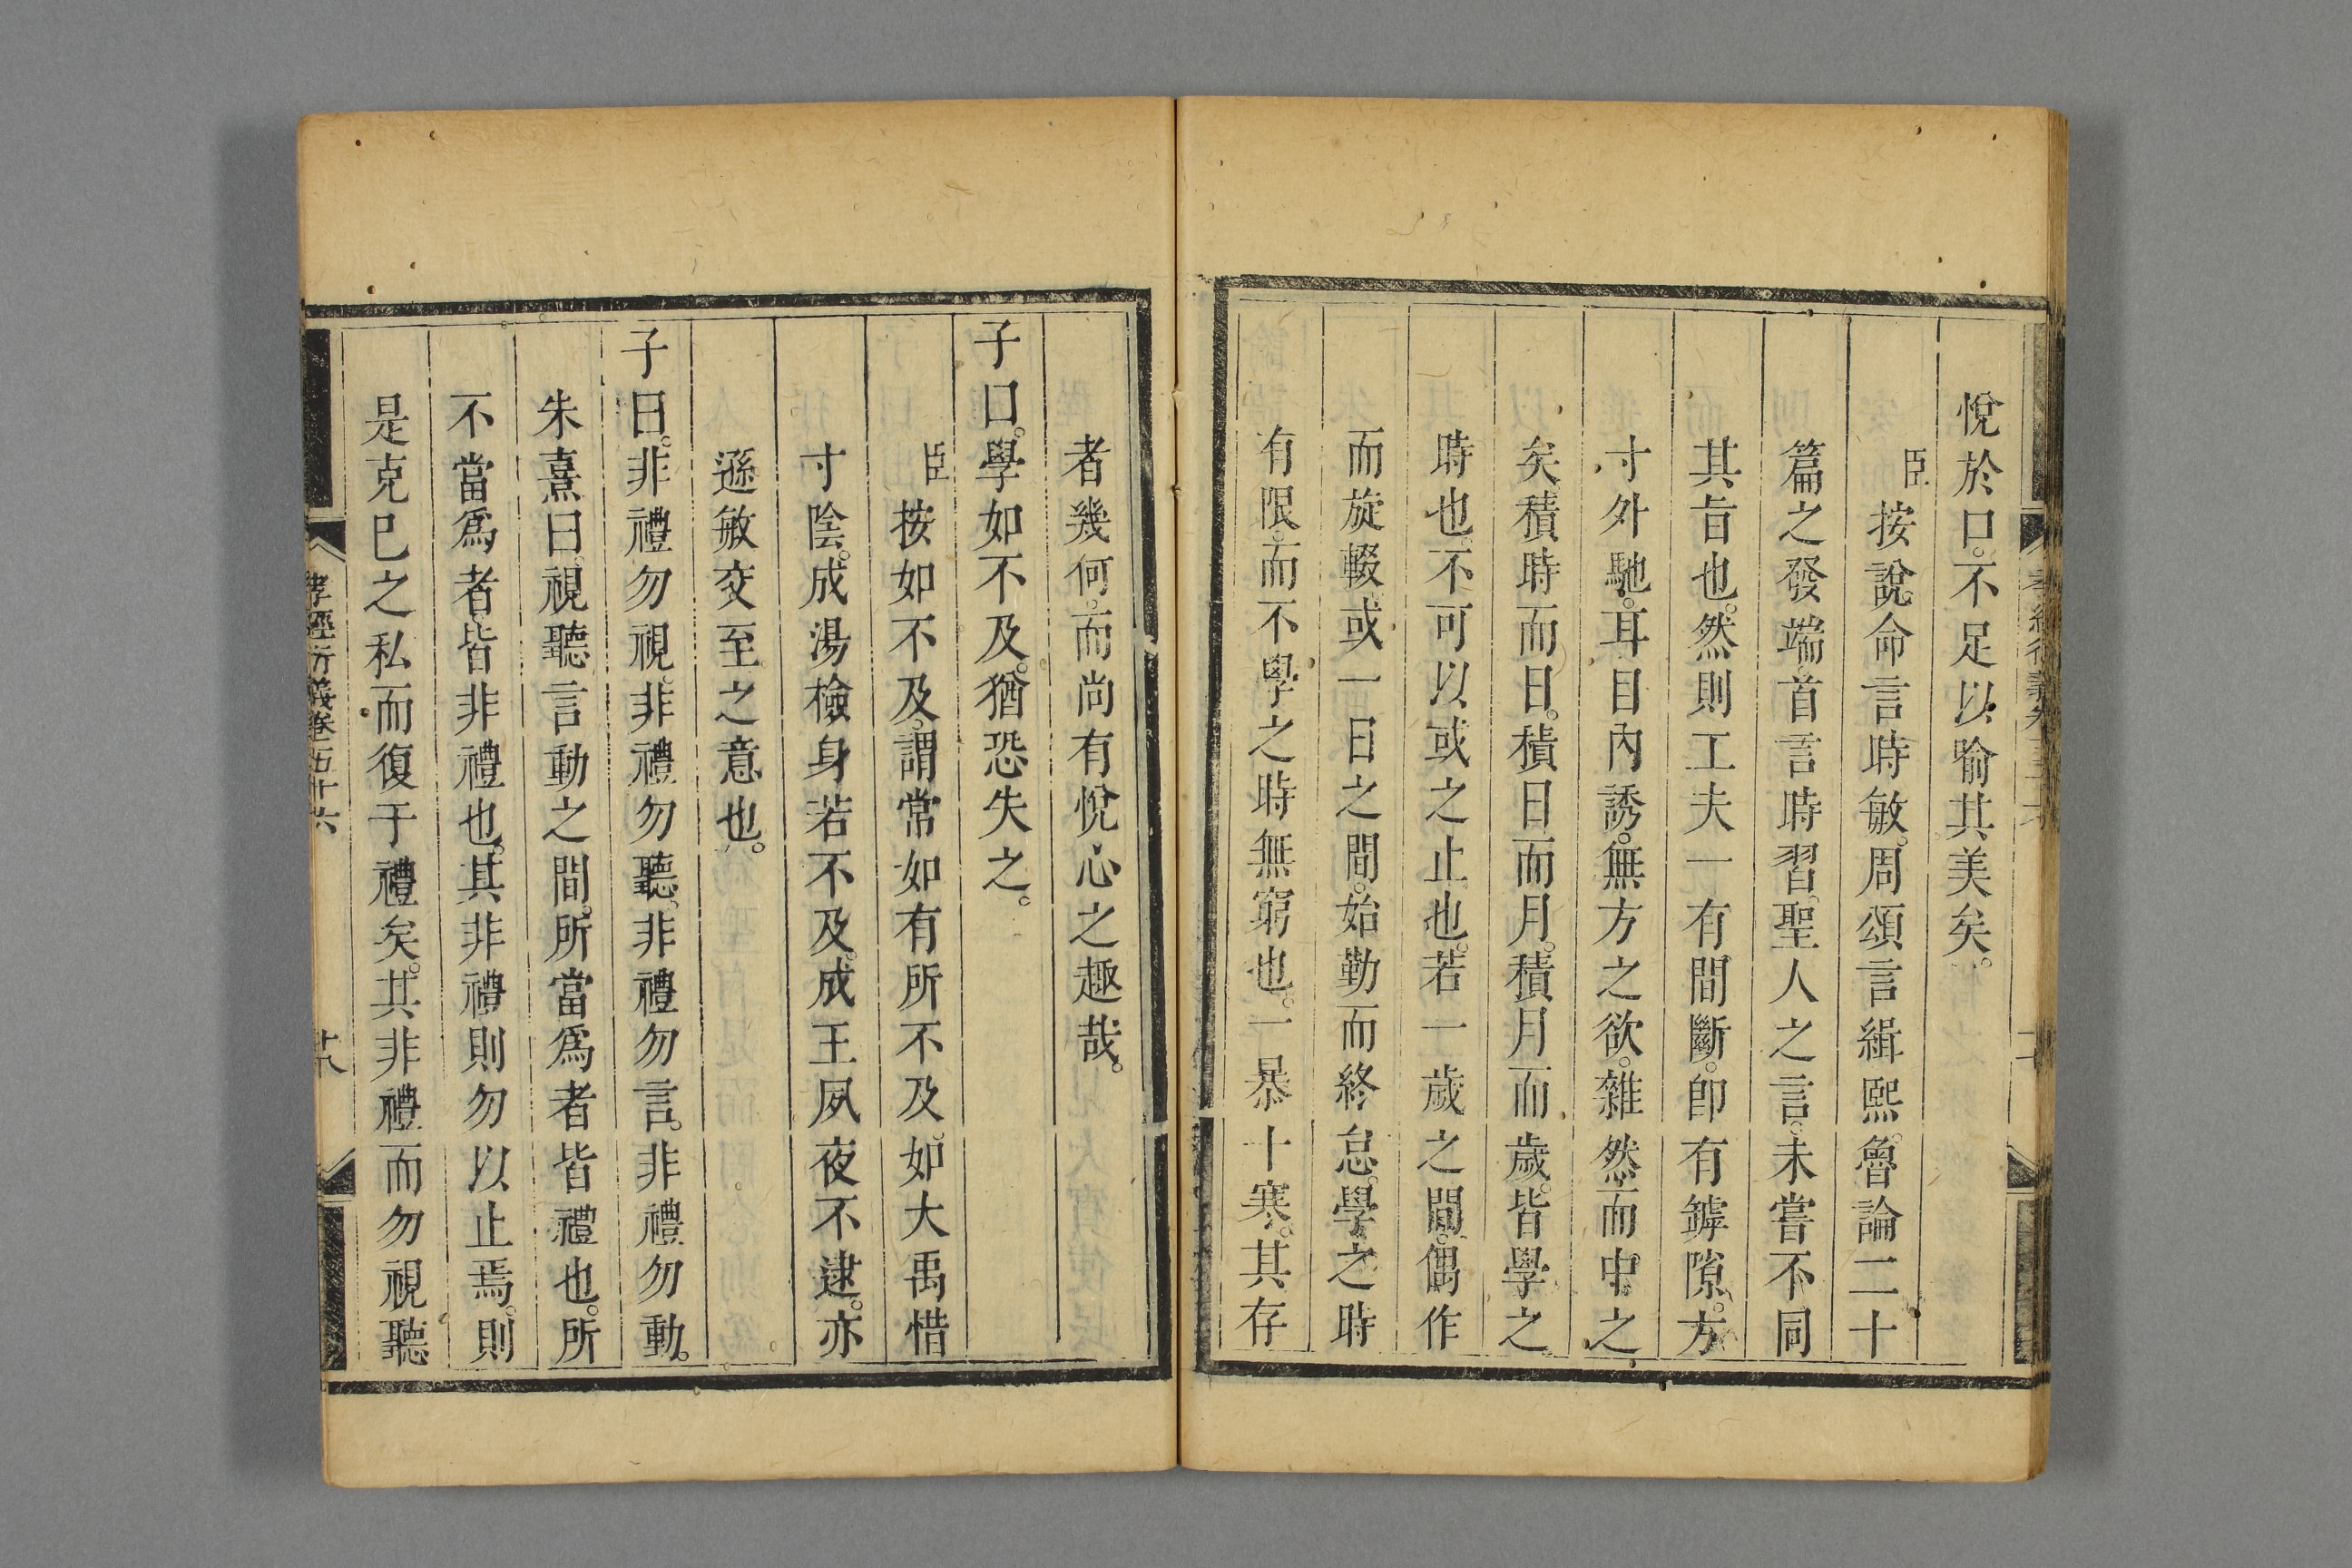 悅於口。不足以喻其美矣。
臣按說命言時敏。周頌言緝熙。魯論二十
篇之發端首言時習。聖人之言。未嘗不同
其旨也。然則工夫一有間斷。卽有罅隙。方
寸外馳。耳目內誘。無方之欲。雜然而中之
矣。積時而日。積日而月。積月而歲。皆學之
時也。不可以或之止也。若一歲之間。偶作
而旋輟。或一日之間。始勤而終怠。學之時
有限。而不學之時無窮也。一暴十寒。其存
者幾何。而尚有悅心之趣哉。
子曰。學如不及。猶恐失之。
臣按如不及。謂常如有所不及。如大禹惜
寸陰。成湯檢身若不及。成王夙夜不逮。亦
遜敏交至之意也。
子曰。非禮勿視。非禮勿聽。非禮勿言。非禮勿動。
朱熹曰。視聽言動之間。所當爲者皆禮也。所
不當爲者。皆非禮也。其非禮則勿以止焉。則
是克巳之私而復于禮矣。其非禮而勿視聽
孝經衍義卷五十六
廿八